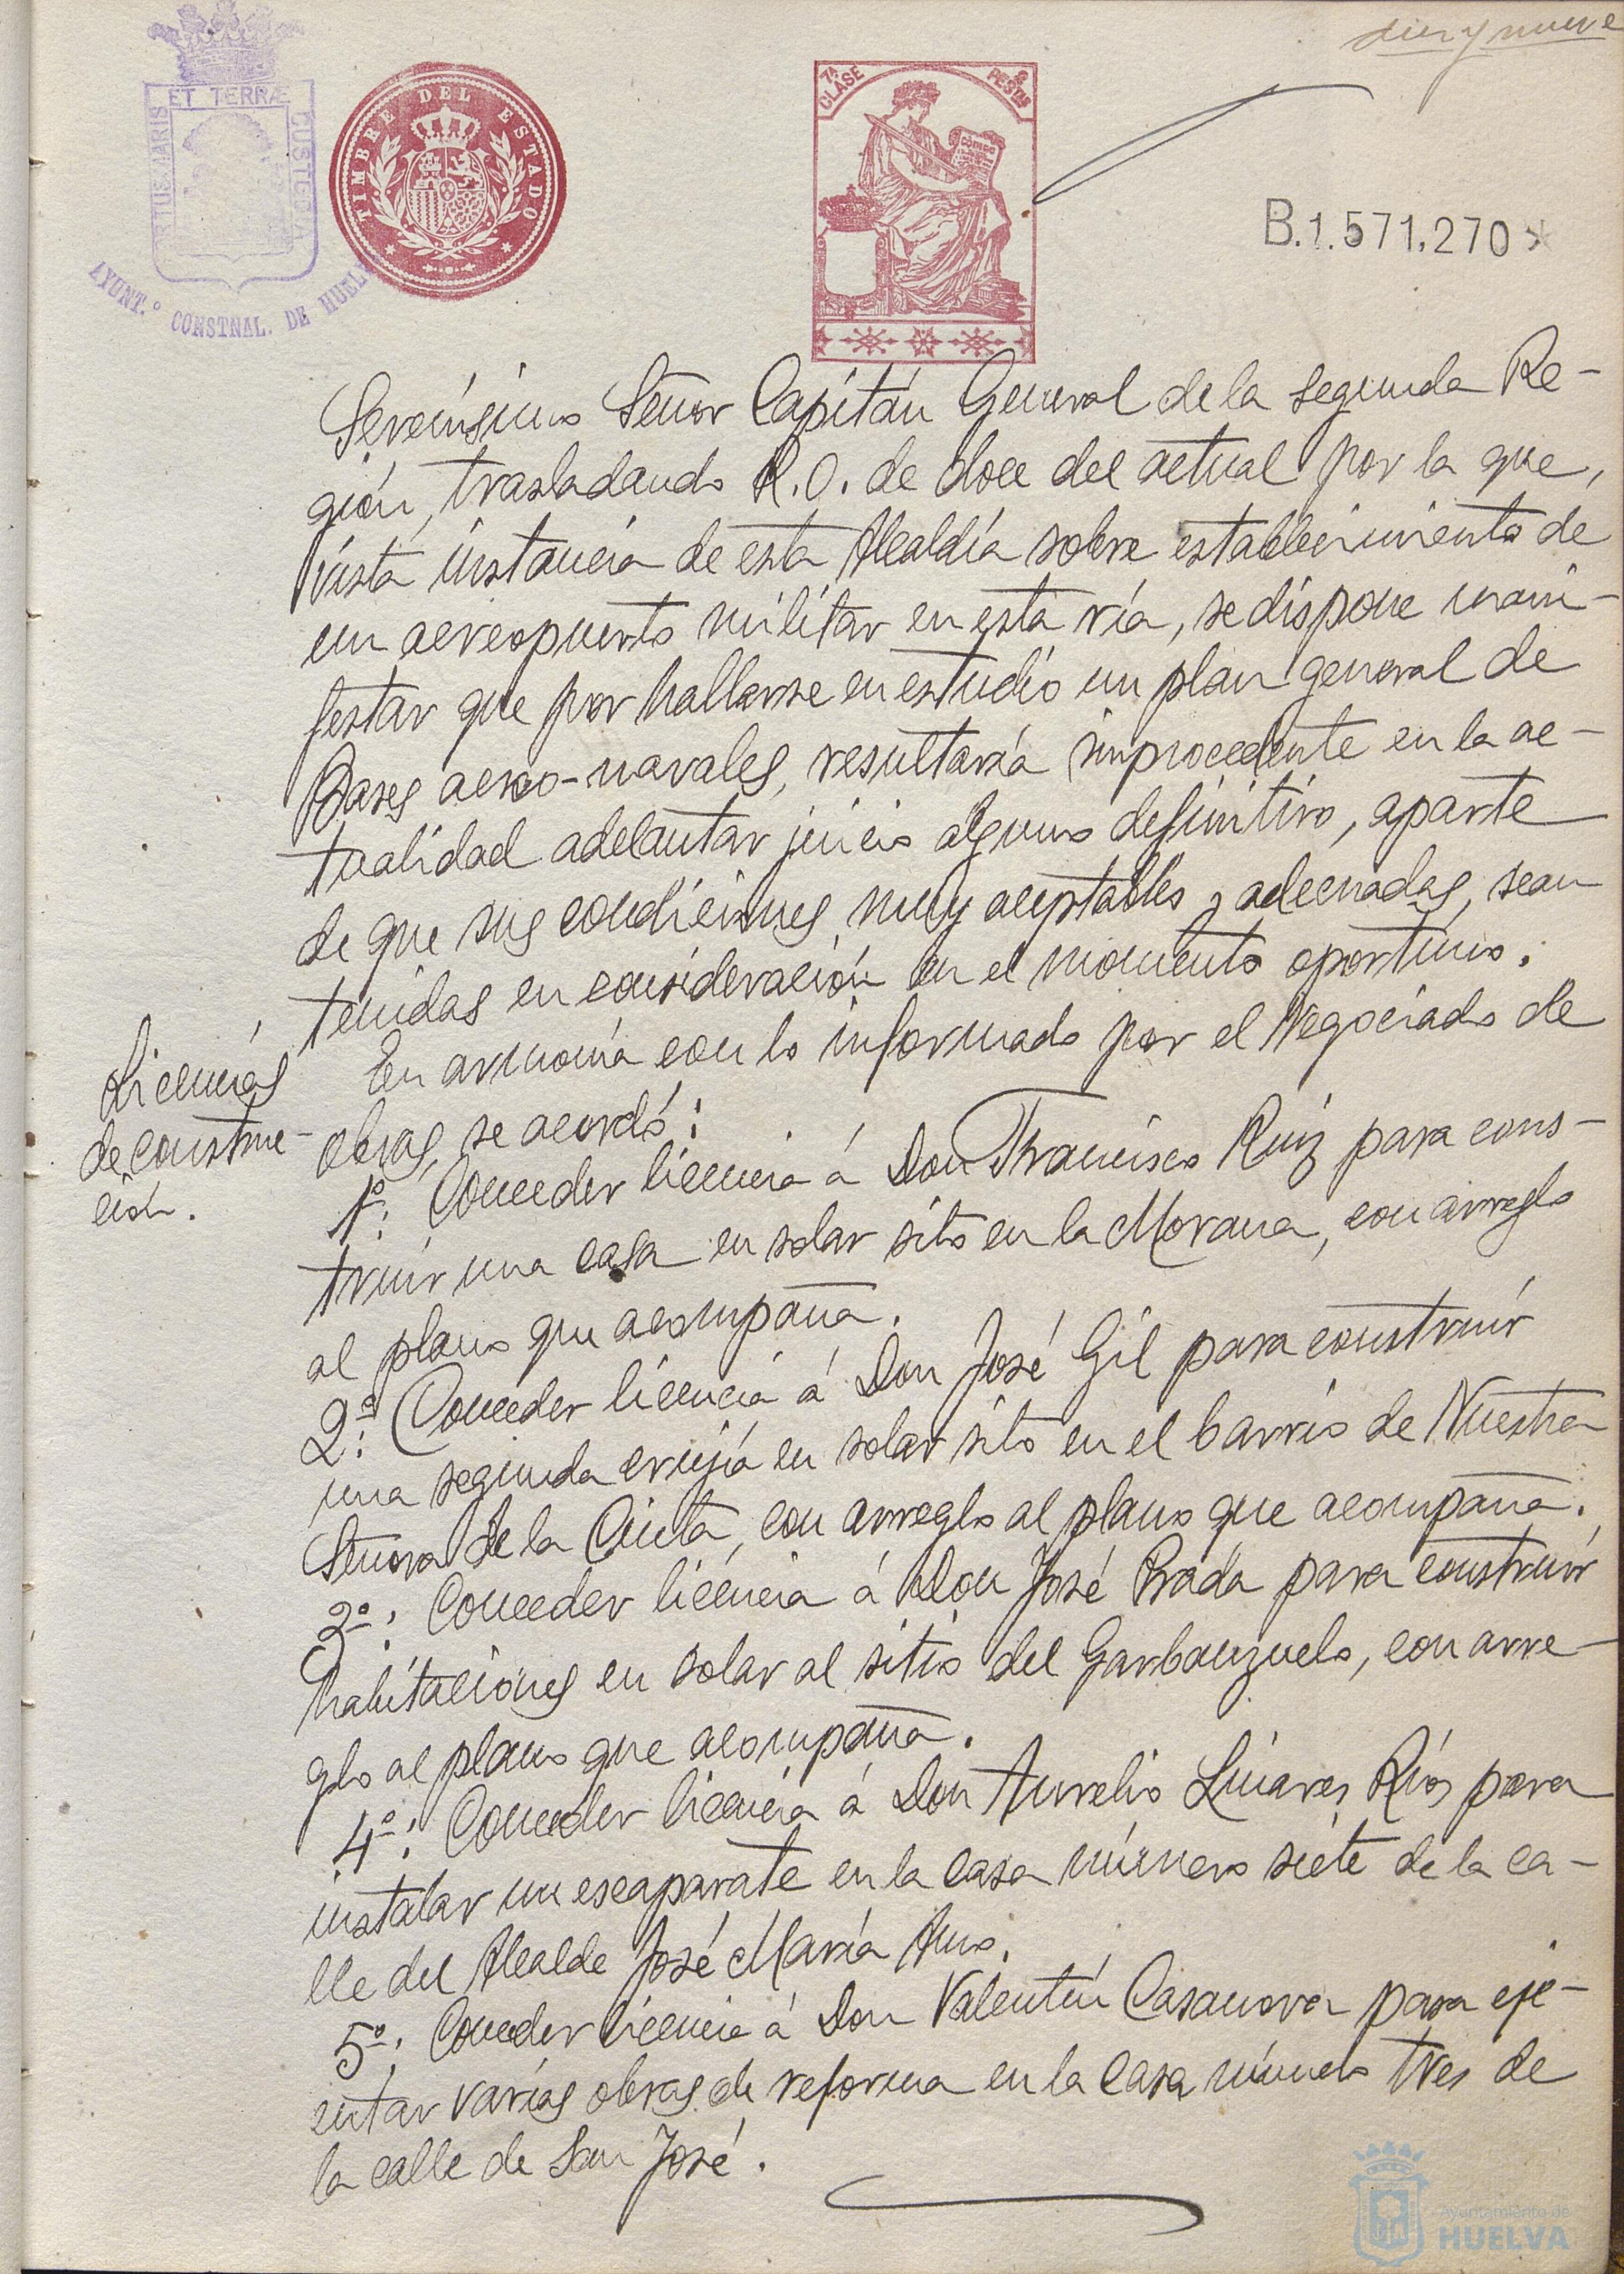 diez y nueve
ET TERRÆ
PORTUS MARIS
CUSTODIA
AYUNT.º CONSTNAL. DE HUELVA
TIMBRE DEL ESTADO
7ª CLASE
PESTAS
CODIGO
B.1.571.270
Serenísimo Señor Capitán General de la segunda Re-
gión, trasladando R.O. de doce del actual por la que,
vista instancia de esta Alcaldía sobre establecimiento de
un aereopuerto militar en esta ría, se dispone mani-
festar que por hallarse en estudio un plan general de
Bases aereo-navales, resultaría improcedente en la ac-
tualidad adelantar juicio alguno definitivo, aparte
de que sus condiciones, muy aceptables y adecuadas, sean
tenidas en consideración en el momento oportuno.
Licencias
de construc-
ción.
En armonía con lo informado por el Negociado de
obras, se acordó:
1º: Conceder licencia á Don Francisco Ruiz para cons-
truir una casa en solar sito en la Morana, con arreglo
al plano que acompaña.
2º: Conceder licencia á Don José Gil para construir
una segunda crujía en solar sito en el barrio de Nuestra
Señora de la Cinta, con arreglo al plano que acompaña.
3º: Conceder licencia á Don José Prada para construir
habitaciones en solar al sitio del Garbanzuelo, con arre-
glo al plano que acompaña.
4º: Conceder licencia á Don Aurelio Linares Ríos para
instalar un escaparate en la casa número siete de la ca-
lle del Alcalde José María Amo.
5º: Conceder licencia á Don Valentín Casanova para eje-
cutar varias obras de reforma en la casa número tres de
la calle de San José.
Ayuntamiento de
HUELVA